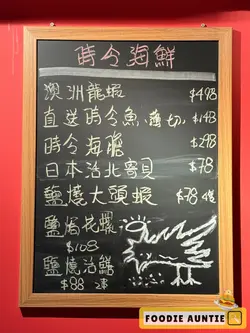 時令海鮮
澳洲龍蝦 $498
直送時令魚(薄切) $148
時令海膽 $298
日本活北寄貝 $78
鹽燒大頭蝦 $78 4隻
鹽焗花螺
$108
鹽燒活鱔
$88 2串
FOODIE AUNTIE